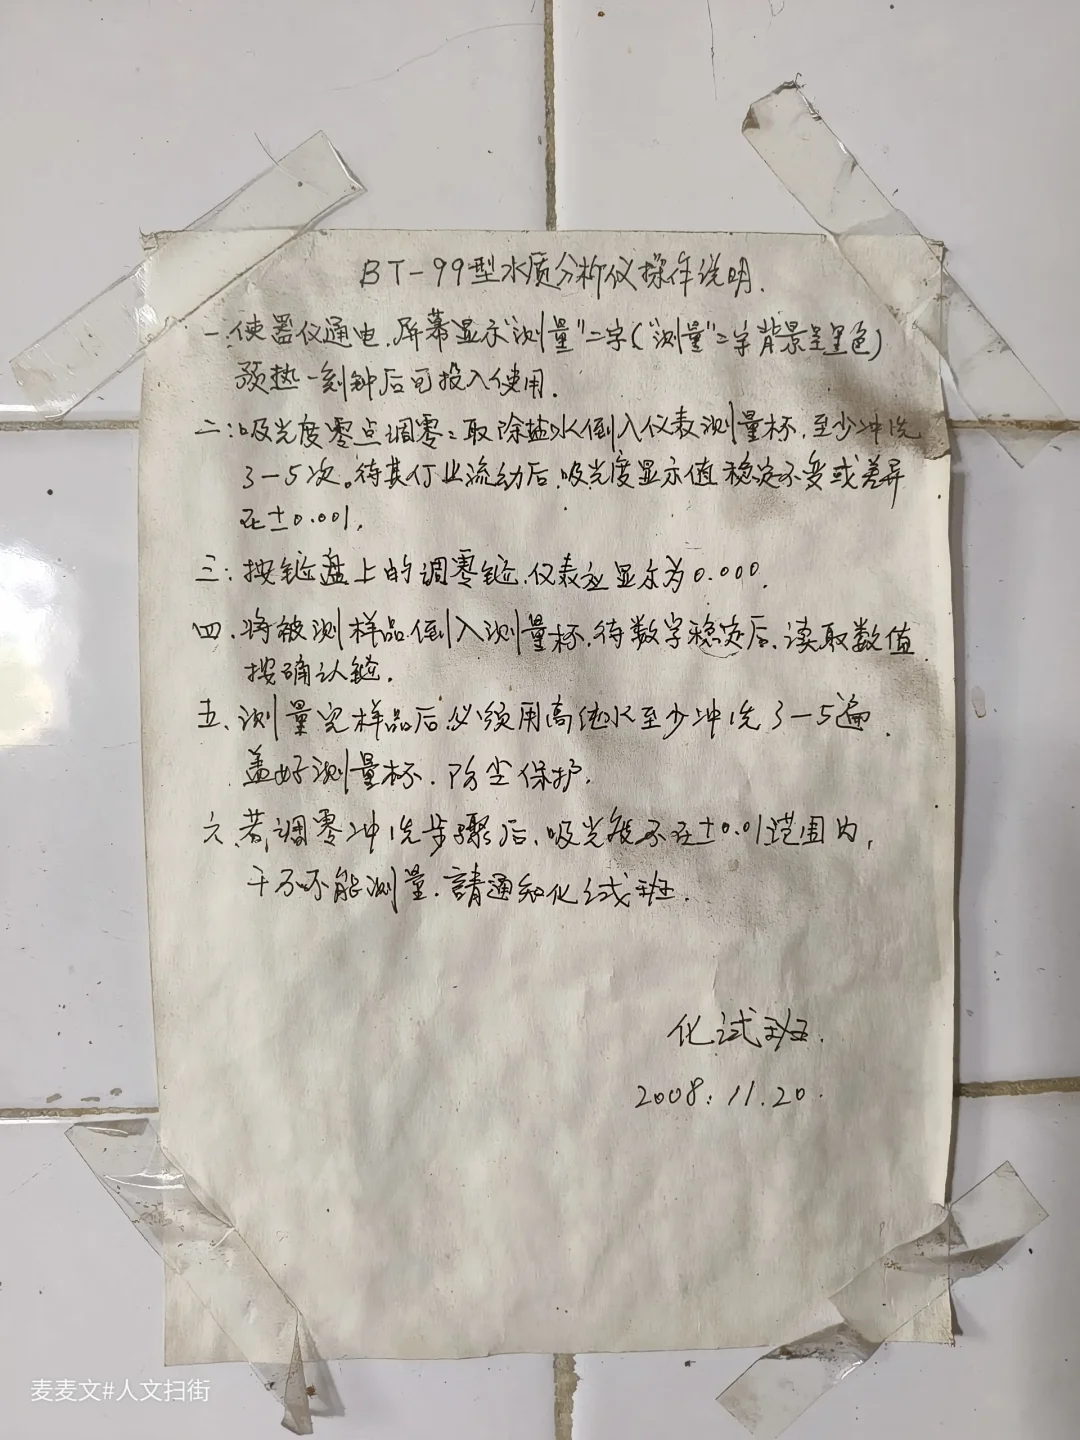 BT-99型水质分析仪操作说明.
一.使器仪通电.屏幕显示"测量"二字("测量"二字背景呈黑色)
预热一刻钟后可投入使用.
二:吸光度零点调零:取除盐水倒入仪表测量杯.至少冲洗
3-5次。待其停止流动后.吸光度显示值稳定不变或差异
在±0.001.
三:按键盘上的调零键.仪表应显示为0.000.
四.将被测样品倒入测量杯.待数字稳定后.读取数值
按确认键.
五.测量完样品后.必须用高纯水至少冲洗3-5遍.
盖好测量杯.防尘保护.
六.若调零冲洗步骤后.吸光度不在±0.01范围内,
不能测量.請通知化试班.
化试班.
2008.11.20.
麦麦文#人文扫街